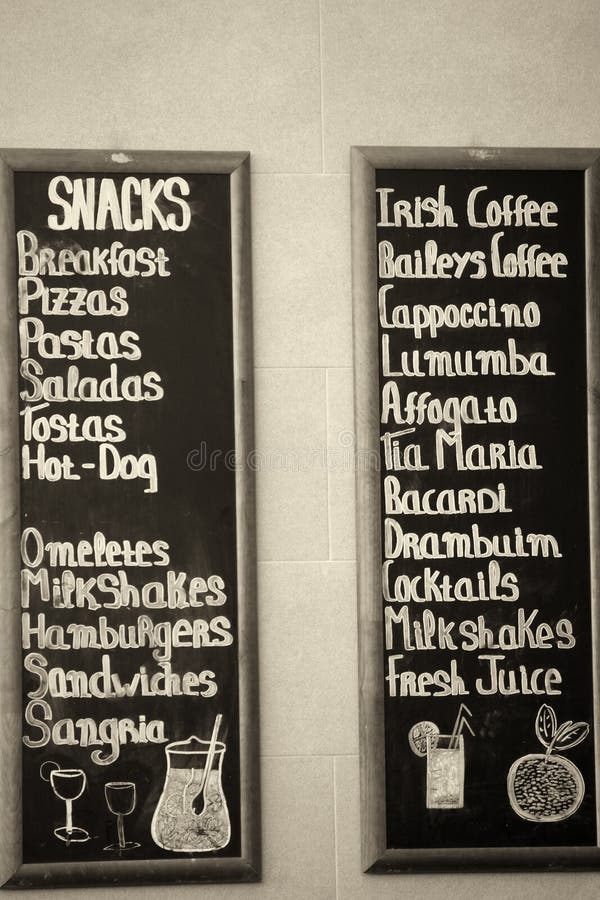 SNACKS
Breakfast
Pizzas
Pastas
Saladas
Tostas
Hot-Dog
Omeletes
Milkshakes
Hamburgers
Sandwiches
Sangria
Irish Coffee
Baileys Coffee
Cappoccino
Lumumba
Affogato
Tia Maria
Bacardi
Drambuim
Cocktails
Milkshakes
Fresh Juice
dreamstime